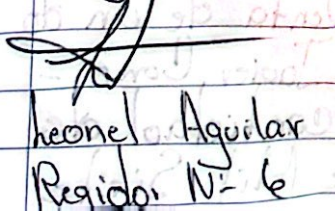 Leonel Aguilar
Regidor Nº 6